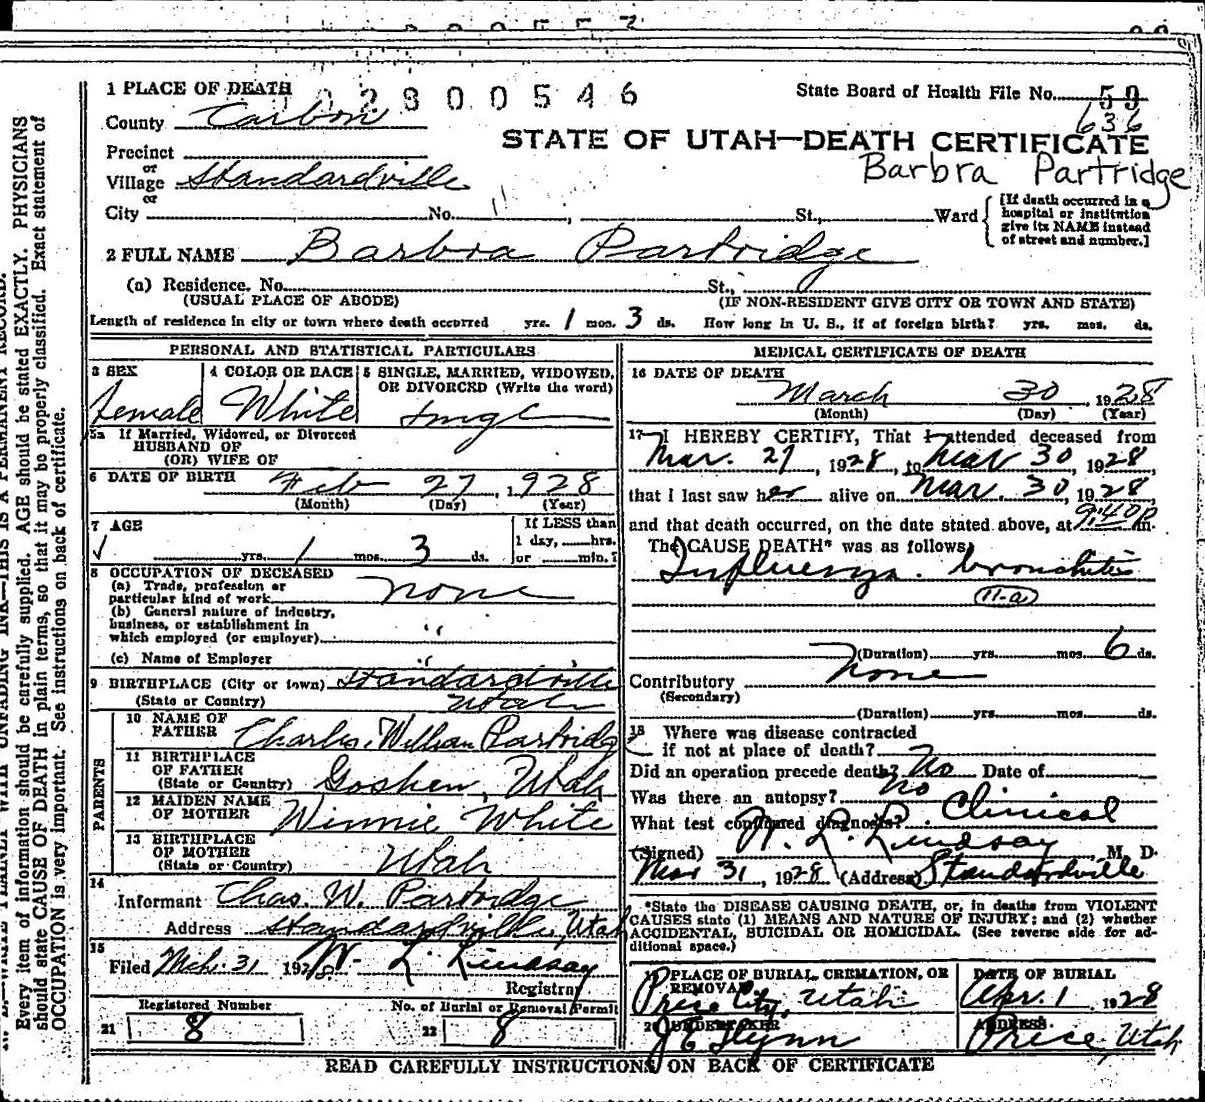 1 PLACE OF DEATH
2 8 0 0 5 4 6
State Board of Health File No. 59
636
County Carbon
STATE OF UTAH—DEATH CERTIFICATE
Barbra Partridge
Precinct
or
Village Standardville
or
City No. St., Ward
[If death occurred in a hospital or institution give its NAME instead of street and number.]
2 FULL NAME Barbra Partridge
(a) Residence. No. St.,
(USUAL PLACE OF ABODE) (IF NON-RESIDENT GIVE CITY OR TOWN AND STATE)
Length of residence in city or town where death occurred yrs. 1 mos. 3 ds. How long in U. S., if of foreign birth? yrs. mos. ds.
PERSONAL AND STATISTICAL PARTICULARS
3 SEX
female
4 COLOR OR RACE
White
5 SINGLE, MARRIED, WIDOWED,
OR DIVORCED (Write the word)
5a If Married, Widowed, or Divorced
HUSBAND OF
(OR) WIFE OF
6 DATE OF BIRTH Feb 27, 1928
(Month) (Day) (Year)
7 AGE
yrs. 1 mos. 3 ds.
If LESS than
1 day, hrs.
or min.?
8 OCCUPATION OF DECEASED
(a) Trade, profession or
particular kind of work none
(b) General nature of industry,
business, or establishment in
which employed (or employer) "
(c) Name of Employer "
9 BIRTHPLACE (City or town) Standardville
(State or Country) Utah
PARENTS
10 NAME OF
FATHER Charles William Partridge
11 BIRTHPLACE
OF FATHER
(State or Country) Goshen, Utah
12 MAIDEN NAME
OF MOTHER Winnie White
13 BIRTHPLACE
OF MOTHER
(State or Country) Utah
14
Informant Chas. W. Partridge
Address Standardville, Utah
15
Filed Mch. 31 1928 W. L. Lindsay
Registrar
Registered Number
21 8
No. of Burial or Removal Permit
22 8
MEDICAL CERTIFICATE OF DEATH
16 DATE OF DEATH
March 30, 1928
(Month) (Day) (Year)
17 I HEREBY CERTIFY, That I attended deceased from
Mar. 27, 1928, to Mar 30, 1928,
that I last saw her alive on Mar. 30, 1928,
and that death occurred, on the date stated above, at 9:40 P m.
The CAUSE DEATH* was as follows:
Influenza. bronchitis
11-a
(Duration) yrs. mos. 6 ds.
Contributory None
(Secondary)
(Duration) yrs. mos. ds.
18 Where was disease contracted
if not at place of death?
Did an operation precede death? No Date of
Was there an autopsy? no
What test confirmed diagnosis? Clinical
(Signed) W. L. Lindsay M. D.
Mar 31, 1928 (Address) Standardville
*State the DISEASE CAUSING DEATH, or, in deaths from VIOLENT
CAUSES state (1) MEANS AND NATURE OF INJURY; and (2) whether
ACCIDENTAL, SUICIDAL OR HOMICIDAL. (See reverse side for ad-
ditional space.)
19 PLACE OF BURIAL, CREMATION, OR
REMOVAL
Price City, Utah
DATE OF BURIAL
Apr. 1 1928
20 UNDERTAKER
J E Flynn
ADDRESS
Price, Utah
READ CAREFULLY INSTRUCTIONS ON BACK OF CERTIFICATE
Every item of information should be carefully supplied. AGE should be stated EXACTLY. PHYSICIANS
should state CAUSE OF DEATH in plain terms, so that it may be properly classified. Exact statement of
OCCUPATION is very important. See instructions on back of certificate.